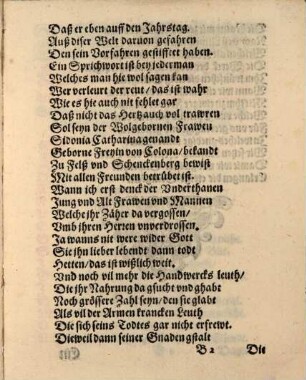 Daß er eben auff den Jahrstag.
Auß diser Welt daruon gefahren
Den sein Vorfahren gestifftet haben.
Ein Sprichwort ist bey jederman
Welches man hie wol sagen kan
Wer verleurt der reut / das ist wahr
Wie es hie auch nit fehlet gar
Daß nicht das Hertz auch vol trawren
Sol seyn der Wolgebornen Frawen
Sidonia Catharina genandt
Geborne Freyin von Colona / bekandt
Zu Felß vnd Schenckenberg bewist
Mit allen Freunden betrübet ist.
Wann ich erst denck der Vnderthanen
Jung vnd Alt Frawen vnd Mannen
Welche ihr Zäher da vergossen /
Vmb ihren Herren vnverdrossen.
Ja wanns nit were wider Gott
Sie ihn lieber lebendt dann todt
Hetten / das ist wißlich weit.
Vnd noch vil mehr die Handwercks leuth /
Die ihr Nahrung da gsucht vnd ghabt
Noch grössere Zahl seyn / den sie glabt
Als vil der Armen krancken Leuth
Die sich seins Todtes gar nicht erfrewt.
Dieweil dann seiner Gnaden gstalt
B 2 Die